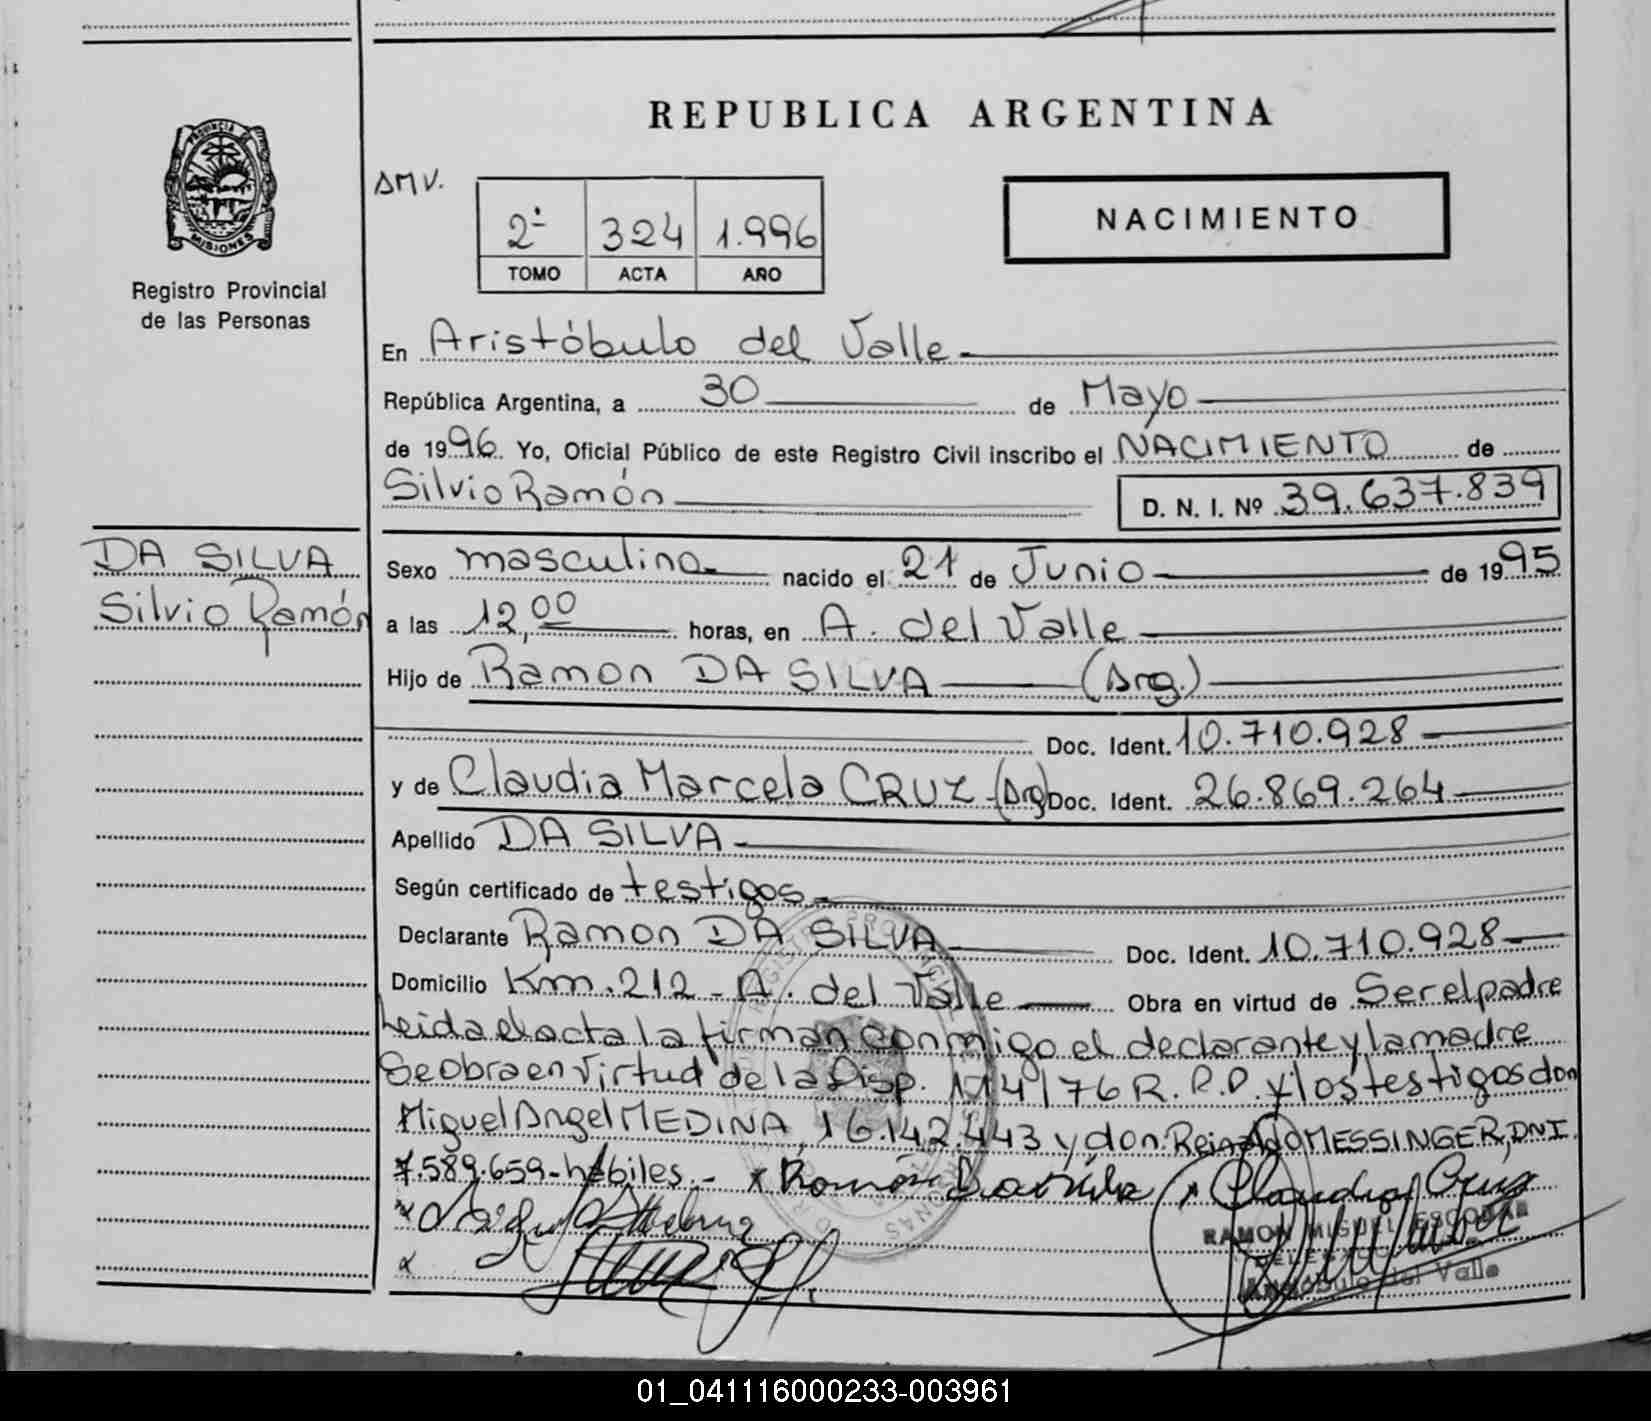 REPUBLICA ARGENTINA
PROVINCIA
MISIONES
Registro Provincial
de las Personas
AMV.
2º 324 1.996
TOMO ACTA AÑO
NACIMIENTO
En Aristóbulo del Valle
República Argentina, a 30 de Mayo
de 1996. Yo, Oficial Público de este Registro Civil inscribo el NACIMIENTO de
Silvio Ramón D. N. I. Nº 39.637.839
DA SILVA
Silvio Ramón
Sexo masculino nacido el 21 de Junio de 1995
a las 12,00 horas, en A. del Valle
Hijo de Ramon DA SILVA (Arg.)
Doc. Ident. 10.710.928
y de Claudia Marcela CRUZ (Arg) Doc. Ident. 26.869.264
Apellido DA SILVA
Según certificado de testigos
Declarante Ramon DA SILVA Doc. Ident. 10.710.928
Domicilio Km. 212 - A. del Valle Obra en virtud de Ser el padre
Leida el acta la firman conmigo el declarante y la madre
Se obra en virtud de la Disp. 114/76 R.P.P. y los testigos don
Miguel Angel MEDINA, 16.142.443 y don Reinaldo MESSINGER, DNI
7.589.659 - hábiles.-
x Claudia Cruz
RAMON MIGUEL ESCOBAR
Aristóbulo del Valle
01_041116000233-003961